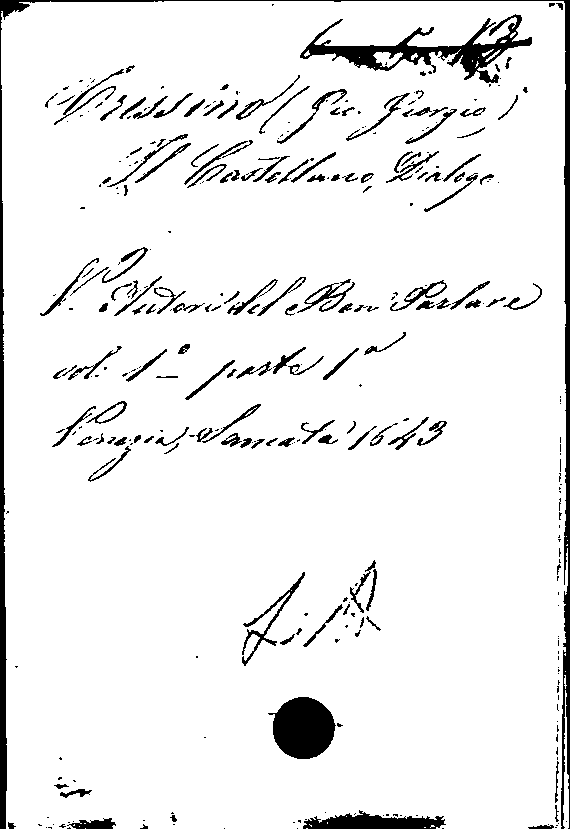 6 5 13
Trissino (Gio. Giorgio)
Il Castellano, Dialogo
V. Autori del Ben Parlare
vol. 1º parte 1ª
Venezia, Samata 1643